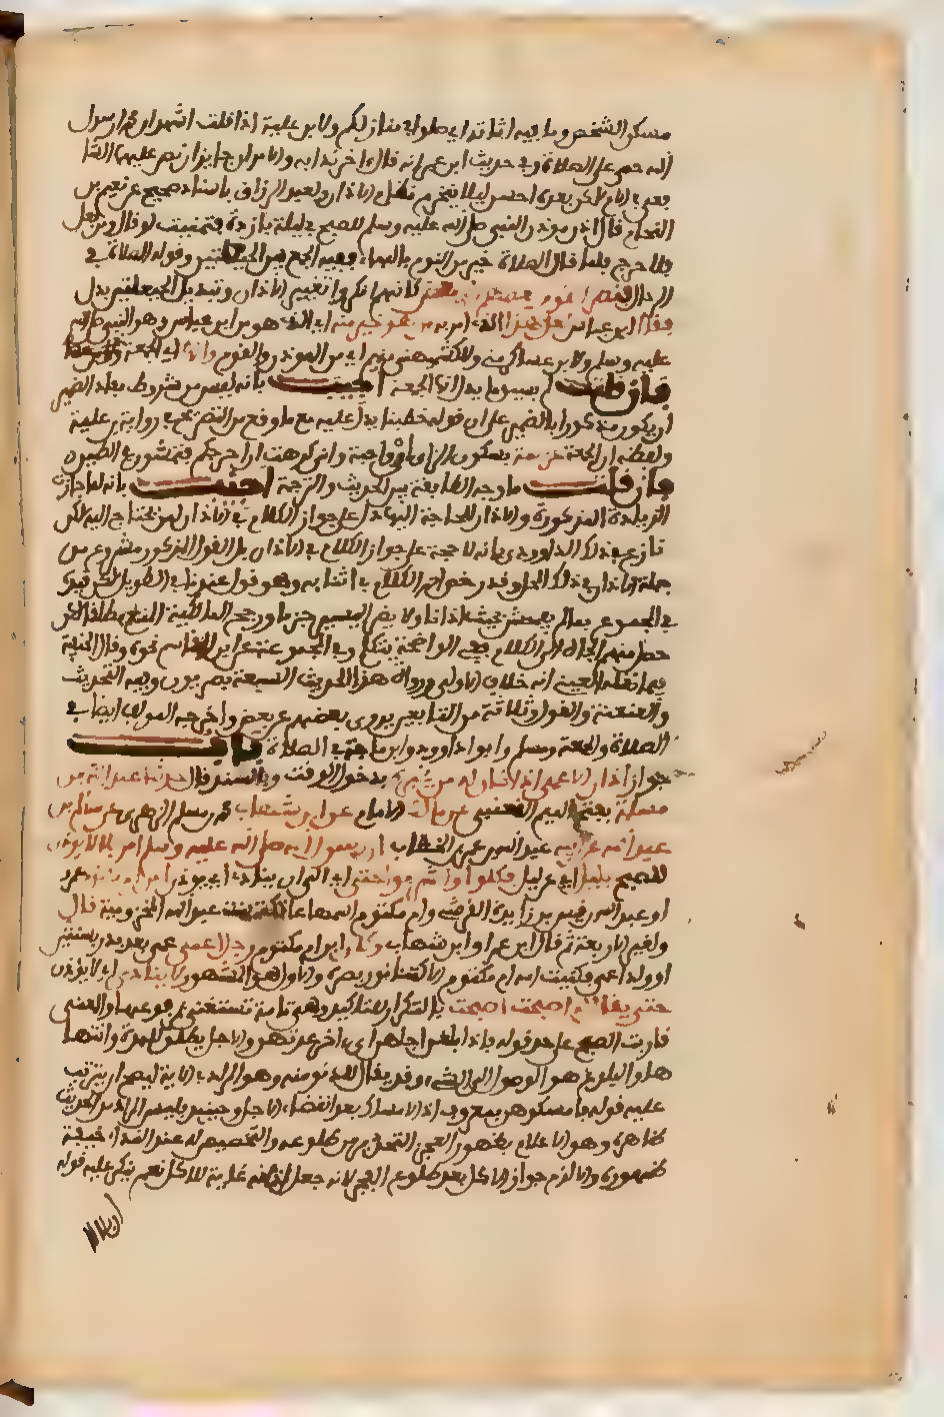 مسكن الشخص وما فيه اثاثه اي صلوا في منازلكم ولابن علية اذا قلت اشهد ان محمدا رسول
الله حي على الصلاة وفي حديث ابن عمر انه قال اخر ندايه والامران جايزان نص عليهما الشا
فعي في الام لكن بعده احسن ليلا ينخرم نظام الاذان ولعبد الرزاق باسناد صحيح عن نعيم بن
النحام قال اذن موذن النبي صلى الله عليه وسلم للصبح في ليلة باردة فتمنيت لو قال ومن قعد
فلا حرج فلما قال الصلاة خير من النوم قالها ففيه الجمع بين الحيعلتين وقوله الصلاة في
الرحال فنظر القوم بعضهم الى بعض كانهم انكروا تغيير الاذان وتبديل الحيعلتين بذلك
فقال ابن عباس فعل هذا الذي امرته به من هو خير منه اي الذي هو من ابن عباس وهو النبي صلى الله
عليه وسلم ولابن عساكر مني وللكشميهني منهم اي من الموذن والقوم وانها اي الجمعة عزمة
فان قلت لم يسبق ما يدل انها الجمعة اجيب بانه ليس من شروط معاد الضمير
ان يكون مذكورا بالضمير على ان قوله خطبنا يدل عليه مع ما وقع من التصريح في رواية بن علية
ولفظه ان الجمعة عزمة بسكون الزاي اي واجبة واني كرهت ان احرجكم فتمشون في الطين
فان قلت ما وجه المطابقة بين الحديث والترجمة اجيب بانه لما جازت
الزيادة المذكورة في الاذان للحاجة اليها دل على جواز الكلام في الاذان لمن يحتاج اليه لكن
نازع في ذلك الداوودي بانه لا حجة على جواز الكلام في الاذان بل القول المذكور مشروع من
جملة الاذان في ذلك المحل وقد رخص احمد الكلام في اثنايه وهو قول عندنا في الطويل لكن قيده
في المجموع بما لم يفحش بحيث لا يعد اذانا ولا يضر اليسير جزما ورجح المالكية المنع مطلقا لكن
حصل منهم الجاه الى الكلام ففي الواضحة يتكلم وفي المجموعة عن ابن القاسم نحوه وقال الحنفية
فيما نقله العيني انه خلاف الاولى ورواة هذا الحديث السبعة بصريون وفيه التحديث
والعنعنة والقول وثلاثة من التابعين يروي بعضهم عن بعض واخرجه المولف ايضا في
الصلاة والجمعة ومسلم وابو داوود وابن ماجة في الصلاة باب
جواز اذان الاعمى اذا كان له من يخبره بدخول الوقت وبالسند قال حدثنا عبد الله بن
مسلمة بفتح الميم القعنبي عن مالك الامام عن ابن شهاب محمد بن مسلم الزهري عن سالم بن
عبد الله عن ابيه عبد الله بن عمر بن الخطاب ان رسول الله صلى الله عليه وسلم قال ان بلالا يوذن
للصبح بليل اي في ليل فكلوا واشربوا حتى اي الى ان ينادي اي يوذن ابن ام مكتوم عمرو
او عبد الله بن قيس بن زايدة القرشي وام مكتوم اسمها عاتكة بنت عبد الله المخزومية قال
ولغير الاربعة ثم قال ابن عمر او ابن شهاب وكان ابن ام مكتوم رجلا اعمى عمي بعد بدر بسنتين
او ولد اعمى فكنيت امه ام مكتوم لاكتتام نور بصره والاول هو المشهور لا ينادي اي لا يوذن
حتى يقال له اصبحت اصبحت بالتكرار للتاكيد وهي تامة تستغني بمرفوعها والمعنى
قاربت الصبح على حد قوله فاذا بلغن اجلهن اي اخر عدتهن والاجل يطلق للمدة ولمنتها
ها والبلوغ هو الوصول الى الشيء وقد يقال للدنو منه وهو المراد في الاية ليصح ان يترتب
عليه قوله فامسكوهن بمعروف اذ لا امساك بعد انقضاء الاجل وحينيذ فليس المراد من الحديث
ظاهره وهو الاعلام بظهور الفجر بل التحذير من طلوعه والتحضيض له على النداء خيفة
ظهوره والا لزم جواز الاكل بعد طلوع الفجر لانه جعل اذانه غاية للاكل نعم يعكر عليه قوله